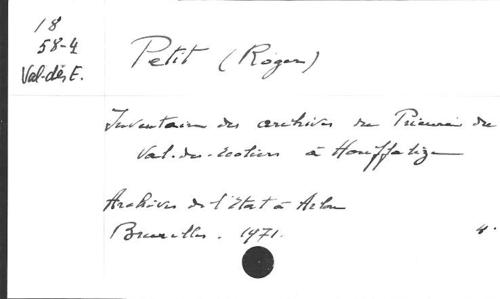 18
58-4
Val-dès E.
Petit (Roger)
Inventaire des archives du Prieuré du
Val-des-Ecoliers à Houffalize
Archives de l'Etat à Arlon
Bruxelles. 1971. 4°